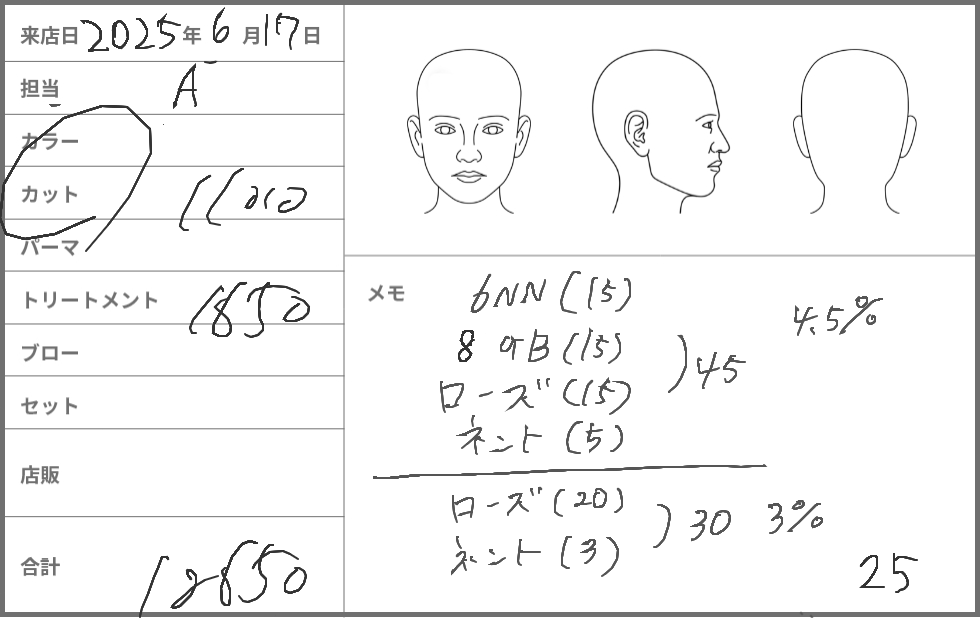 来店日 2025年6月17日
担当 A
カラー
カット 11000
パーマ
トリートメント 1850
ブロー
セット
店販
合計 12850
メモ
6NN (15)
8 (15)
ローズ (15)
ネント (5)
) 45
4.5%
ローズ (20)
ネント (3)
) 30 3%
25